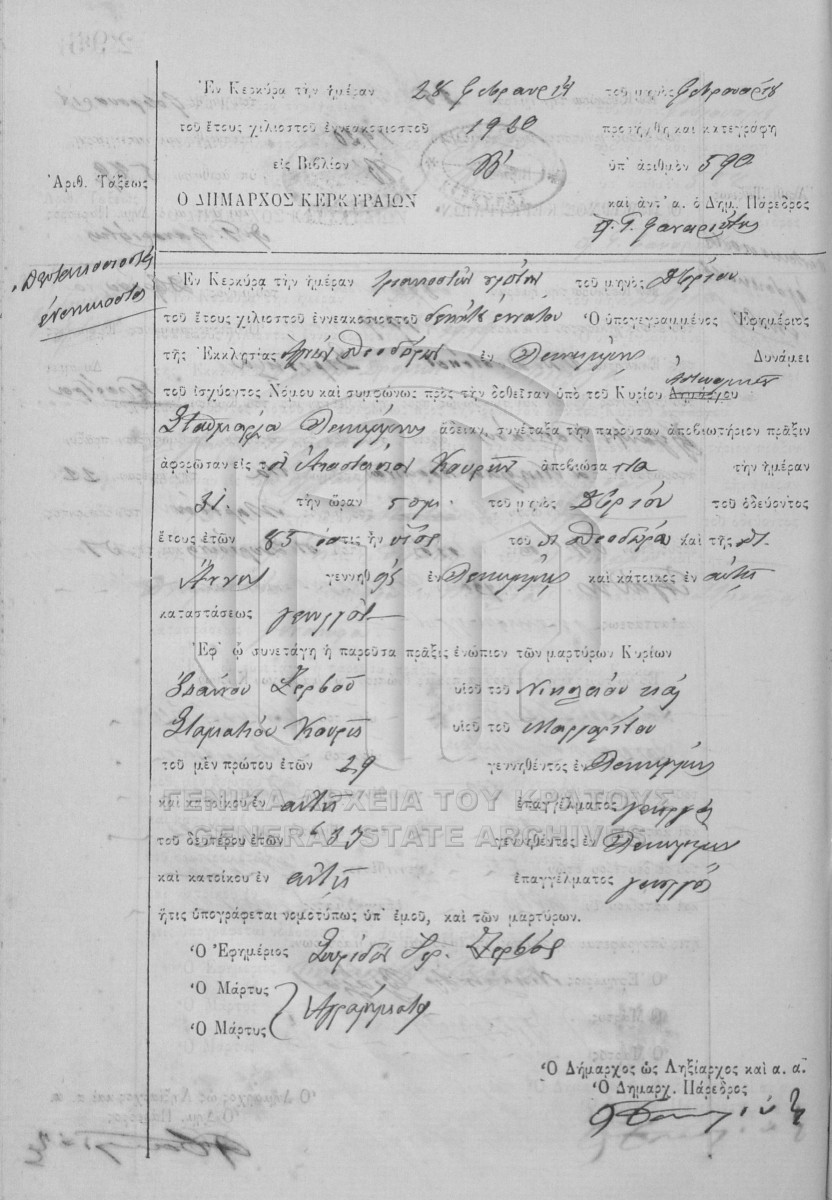 Ἐν Κερκύρᾳ τὴν ἡμέραν 28 Φεβρουαρίου τοῦ μηνὸς Φεβρουαρίου
τοῦ ἔτους χιλιοστοῦ ἐννεακοσιοστοῦ 1920 προσήχθη καὶ κατεγράφη
εἰς Βιβλίον Β' ὑπ' ἀριθμὸν 590
Ἀριθ. Τάξεως
Ο ΔΗΜΑΡΧΟΣ ΚΕΡΚΥΡΑΙΩΝ
καὶ ἀντ' α. ὁ Δημ. Πάρεδρος
ἐνενηκοστός
Ἐν Κερκύρᾳ τὴν ἡμέραν τριακοστὴν πρώτην τοῦ μηνὸς
τοῦ ἔτους χιλιοστοῦ ἐννεακοσιοστοῦ δεκάτου ἐννάτου Ὁ ὑπογεγραμμένος Ἐφημέριος
τῆς Ἐκκλησίας Ἁγίων Θεοδώρων ἐν Λευκίμμης Δυνάμει
τοῦ ἰσχύοντος Νόμου καὶ συμφώνως πρὸς τὴν δοθεῖσαν ὑπὸ τοῦ Κυρίου Δημάρχου Ἀστυνομικοῦ
Σταθμάρχου Λευκίμμης ἄδειαν, συνέταξα τὴν παροῦσαν ἀποβιωτήριον πρᾶξιν
ἀφορῶσαν εἰς τὸν Ἀναστάσιον Κουρῆν ἀποβιώσαντα τὴν ἡμέραν
31. τὴν ὥραν 5 πμ. τοῦ μηνὸς τοῦ ὁδεύοντος
ἔτους ἐτῶν 85 ὅστις ἦν υἱὸς τοῦ π Θεοδώρου καὶ τῆς
Ἄννης γεννηθεὶς ἐν Λευκίμμης καὶ κάτοικος ἐν αὐτῇ
καταστάσεως γεωργὸς
Ἐφ' ᾧ συνετάγη ἡ παροῦσα πρᾶξις ἐνώπιον τῶν μαρτύρων Κυρίων
Ἰωάννου Ζερβοῦ υἱοῦ τοῦ Νικολάου καὶ
Σταματίου Κουρῆ υἱοῦ τοῦ Μαργαρίτου
τοῦ μὲν πρώτου ἐτῶν 29 γεννηθέντος ἐν Λευκίμμης
καὶ κατοίκου ἐν αὐτῇ ἐπαγγέλματος γεωργὸς
ΓΕΝΙΚΑ ΑΡΧΕΙΑ ΤΟΥ ΚΡΑΤΟΥΣ
GENERAL STATE ARCHIVES
τοῦ δευτέρου ἐτῶν γεννηθέντος ἐν Λευκίμμης
καὶ κατοίκου ἐν αὐτῇ ἐπαγγέλματος γεωργὸς
ἥτις ὑπογράφεται νομοτύπως ὑπ' ἐμοῦ, καὶ τῶν μαρτύρων.
Ὁ Ἐφημέριος Σπυρίδων Ἱερ. Ζερβὸς
Ὁ Μάρτυς
Ἀγράμματοι
Ὁ Μάρτυς
Ὁ Δήμαρχος ὡς Ληξίαρχος καὶ α. α.
Ὁ Δημαρχ. Πάρεδρος